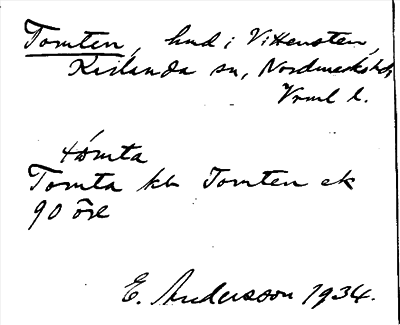 Tomten, hmd i Vittensten,
Karlanda sn, Nordmarks hd,
Vrml l.
tømta
Tomta kb Tomten ek
90 öre
E. Andersson 1934.